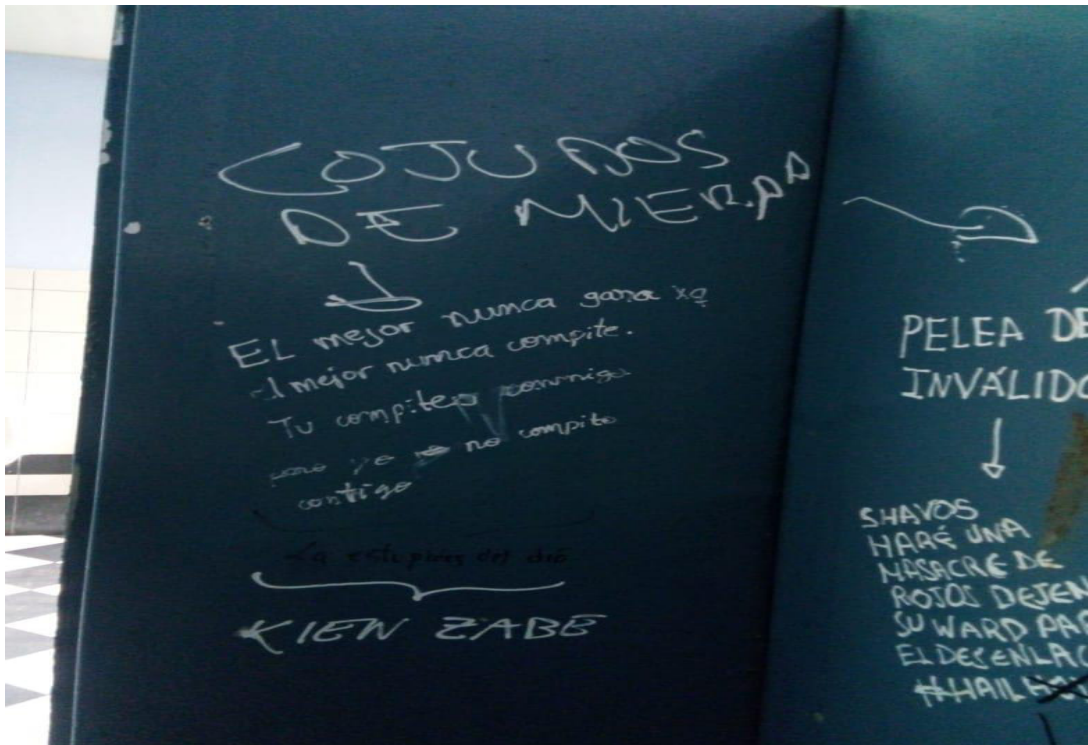 COJUDOS
DE MIERDA
EL mejor nunca gana xq
el mejor nunca compite.
Tu compites conmigo
pero yo no compito
contigo
La estupidez del dia
KIEN ZABE
PELEA DE
INVÁLIDO
SHAVOS
HARÉ UNA
MASACRE DE
ROJOS DEJEN
SU WARD PAR
EL DESENLAC
#HAIL